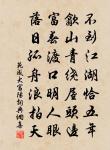 不到江湖恰五年
歙山青繞屋頭邊
富春渡口明人眼
落日孤舟浪拍天
范成大富陽